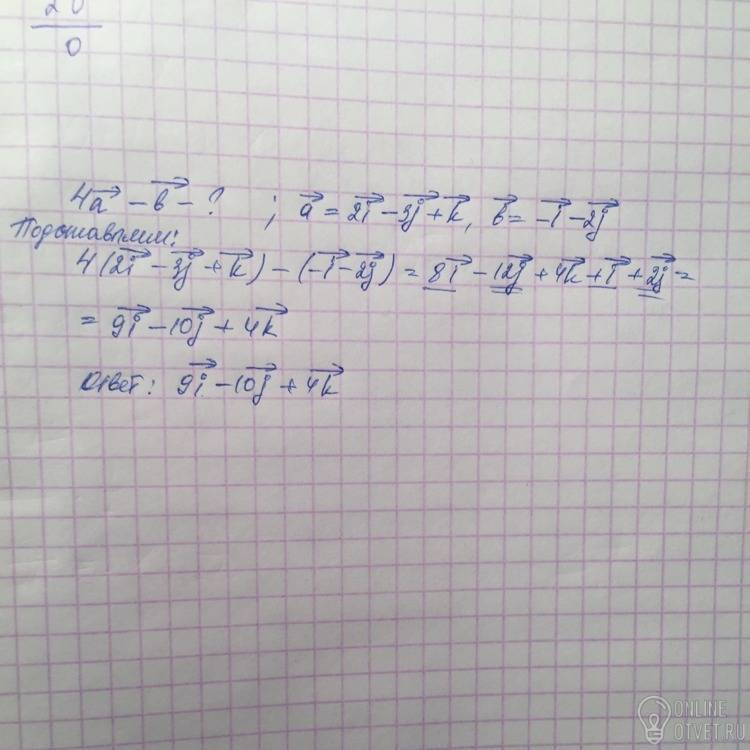 20
0
4a⃗ - b⃗ - ? ; a⃗ = 2i⃗ - 3j⃗ + k⃗, b⃗ = -i⃗ - 2j⃗
Подставляем:
4(2i⃗ - 3j⃗ + k⃗) - (-i⃗ - 2j⃗) = 8i⃗ - 12j⃗ + 4k⃗ + i⃗ + 2j⃗ =
= 9i⃗ - 10j⃗ + 4k⃗
Ответ: 9i⃗ - 10j⃗ + 4k⃗
ONLINE
OTVET.RU